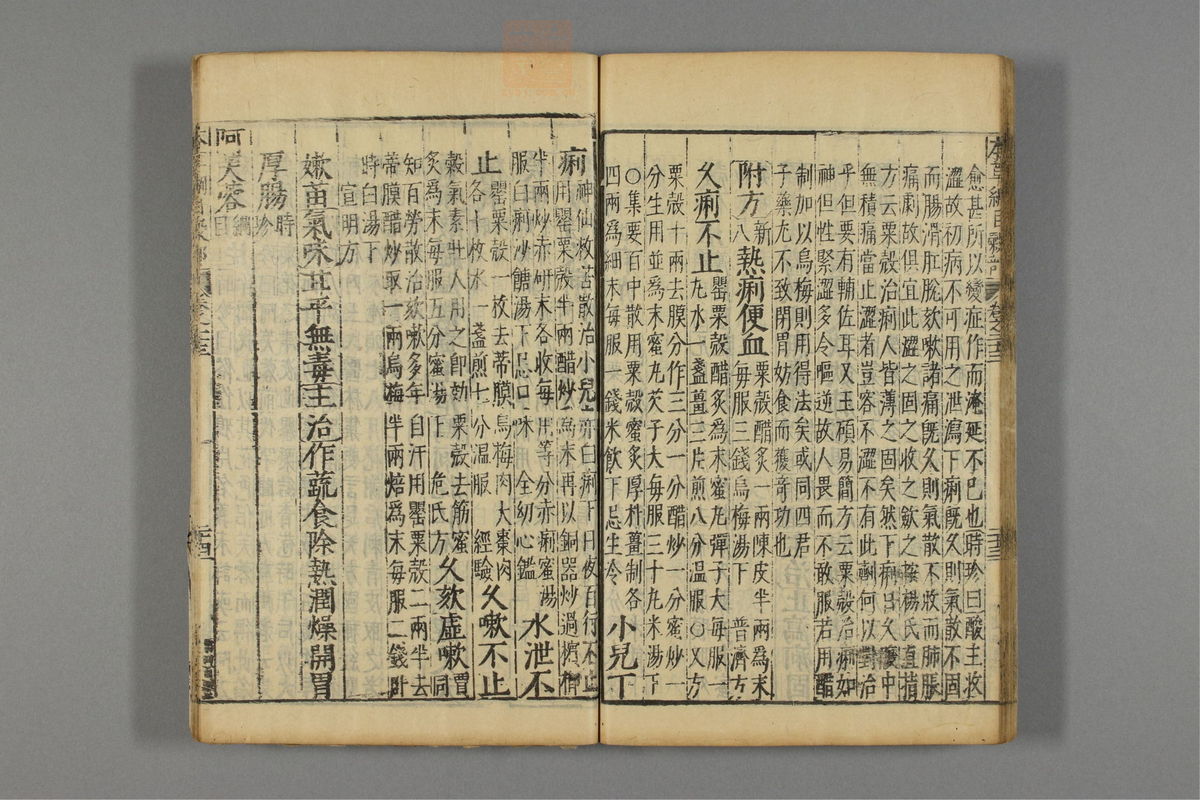 本草綱目穀部 卷之二十三
愈甚所以變症作而淹延不已也時珍曰酸主收
澀故初病不可用之泄瀉下痢既久則氣散不固
而腸滑肛脫欬嗽諸痛既久則氣散不收而肺脹
痛劇故俱宜此澀之固之收之歛之按楊氏直指
方云粟殼治痢人皆薄之固矣然下痢日久腹中
無積痛當止澀者豈容不澀不有此劑何以對治
乎但要有輔佐耳又王碩易簡方云粟殼治痢如
神但性緊澀多令嘔逆故人畏而不敢服若用醋
制加以烏梅則用得法矣或同四君
子藥尤不致閉胃妨食而獲奇功也
附方新八 熱痢便血 粟殼醋炙一兩陳皮半兩爲末
每服三錢烏梅湯下 普濟方
久痢不止 罌粟殼醋炙爲末蜜丸彈子大每服一
丸水一盞薑三片煎八分溫服○又方
粟殼十兩去膜分作三分一分醋炒一分蜜炒一
分生用並爲末蜜丸芡子大每服三十丸米湯下
○集要百中散用粟殼蜜炙厚朴薑制各
四兩爲細末每服一錢米飲下忌生冷 小兒下
痢 神仙救苦散治小兒赤白痢下日夜百行不止
用罌粟殼半兩醋炒爲末再以銅器炒過檳榔
半兩炒赤研末各收每用等分赤痢蜜湯
服白痢沙糖湯下忌口味 全幼心鑑 水泄不
止 罌粟殼一枚去蒂膜烏梅肉大棗肉
各十枚水一盞煎七分溫服 經驗 久嗽不止
穀氣素壯人用之卽効粟殼去筋蜜
炙爲末每服五分蜜湯下 危氏方 久欬虛嗽 賈同
知百勞散治欬嗽多年自汗用罌粟殼二兩半去
蒂膜醋炒取一兩烏梅半兩焙爲末每服二錢臥
時白湯下
宣明方
嫩苗氣味甘平無毒主治作蔬食除熱潤燥開胃
厚腸 時珍
阿芙蓉 綱目